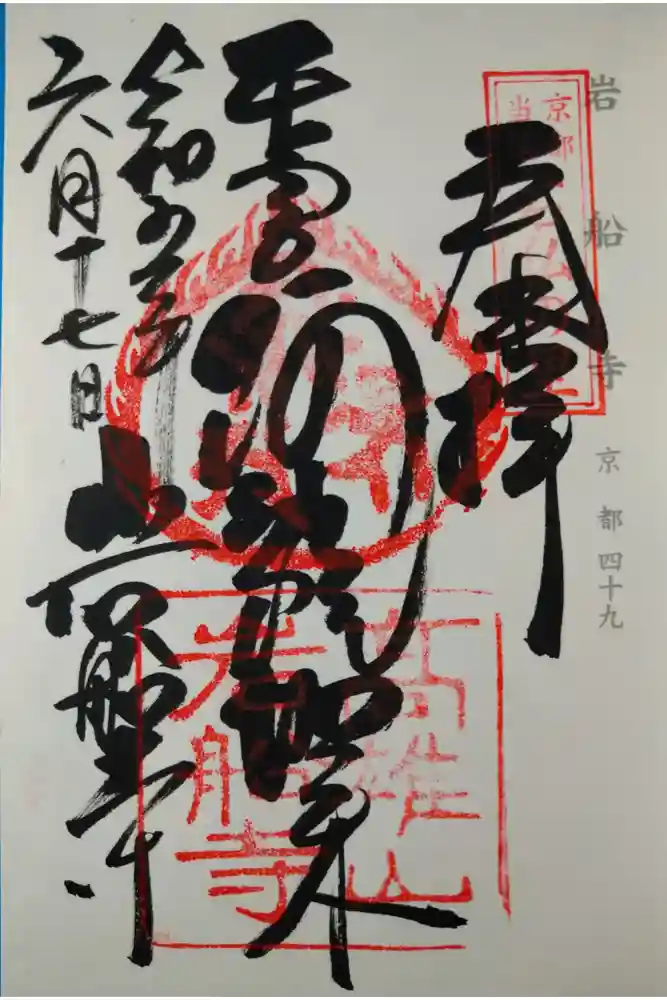 岩船寺 京都四十九
奉拝
阿弥陀如来
令和五年
六月十七日
岩船寺
高雄山
岩船寺